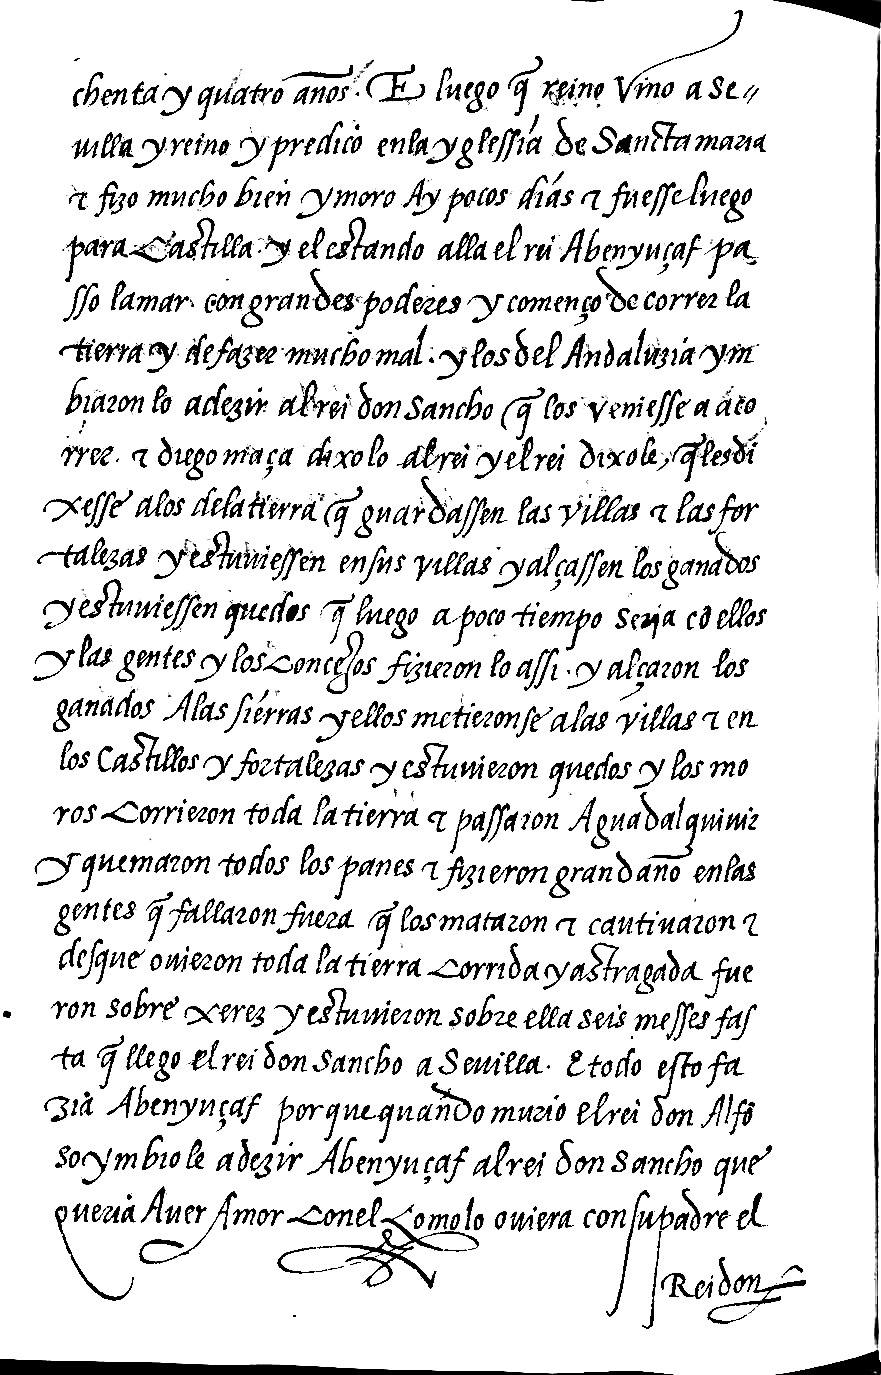 chenta y quatro años. E luego q̃ reino Vino a Se〃
uilla y reino y predicò enla yglessiá de Sancta maria
⁊ fizo mucho bien y moro Ay pocos diás ⁊ fuesse luego
para Castilla y el estando alla el rei Abenyuçaf pa
sso lamar. con grandes poderes y començo de correr la
tierra y de fazer mucho mal. y los del Andaluzia ym
biaron lo adezir al rei don Sancho q̃ los veniesse a aco
rrer. ⁊ diego maça dixolo al rei y el rei dixole, q̃ les di
xesse alos dela tierra q̃ guardassen las villas ⁊ las for
talezas y estuuiessen en sus villas y alçassen los ganados
y estuuiessen quedos q̃ luego a poco tiempo seria cõ ellos
y las gentes y los Concejos fizieron lo assi. y alçaron los
ganados Alas siérras y ellos metieronse alas villas ⁊ en
los Castillos y fortalezas y estuuieron quedos y los mo
ros Corrieron toda la tierra ⁊ passaron Aguadalquiuir
y quemaron todos los panes ⁊ fizieron gran daño enlas
gentes q̃ fallaron fuera q̃ los mataron ⁊ cautiuaron ⁊
desque ouieron toda la tierra Corrida y astragada fue
ron sobre xerez y estuuieron sobre ella seis messes fas
ta q̃ llego el rei don Sancho a Seuilla. E todo esto fa
zià Abenyuçaf porque quando murio el rei don Alfõ
so ymbiole adezir Abenyuçaf al rei don Sancho que
querià Auer Amor Conel Como lo ouiera con su padre el
Rei don